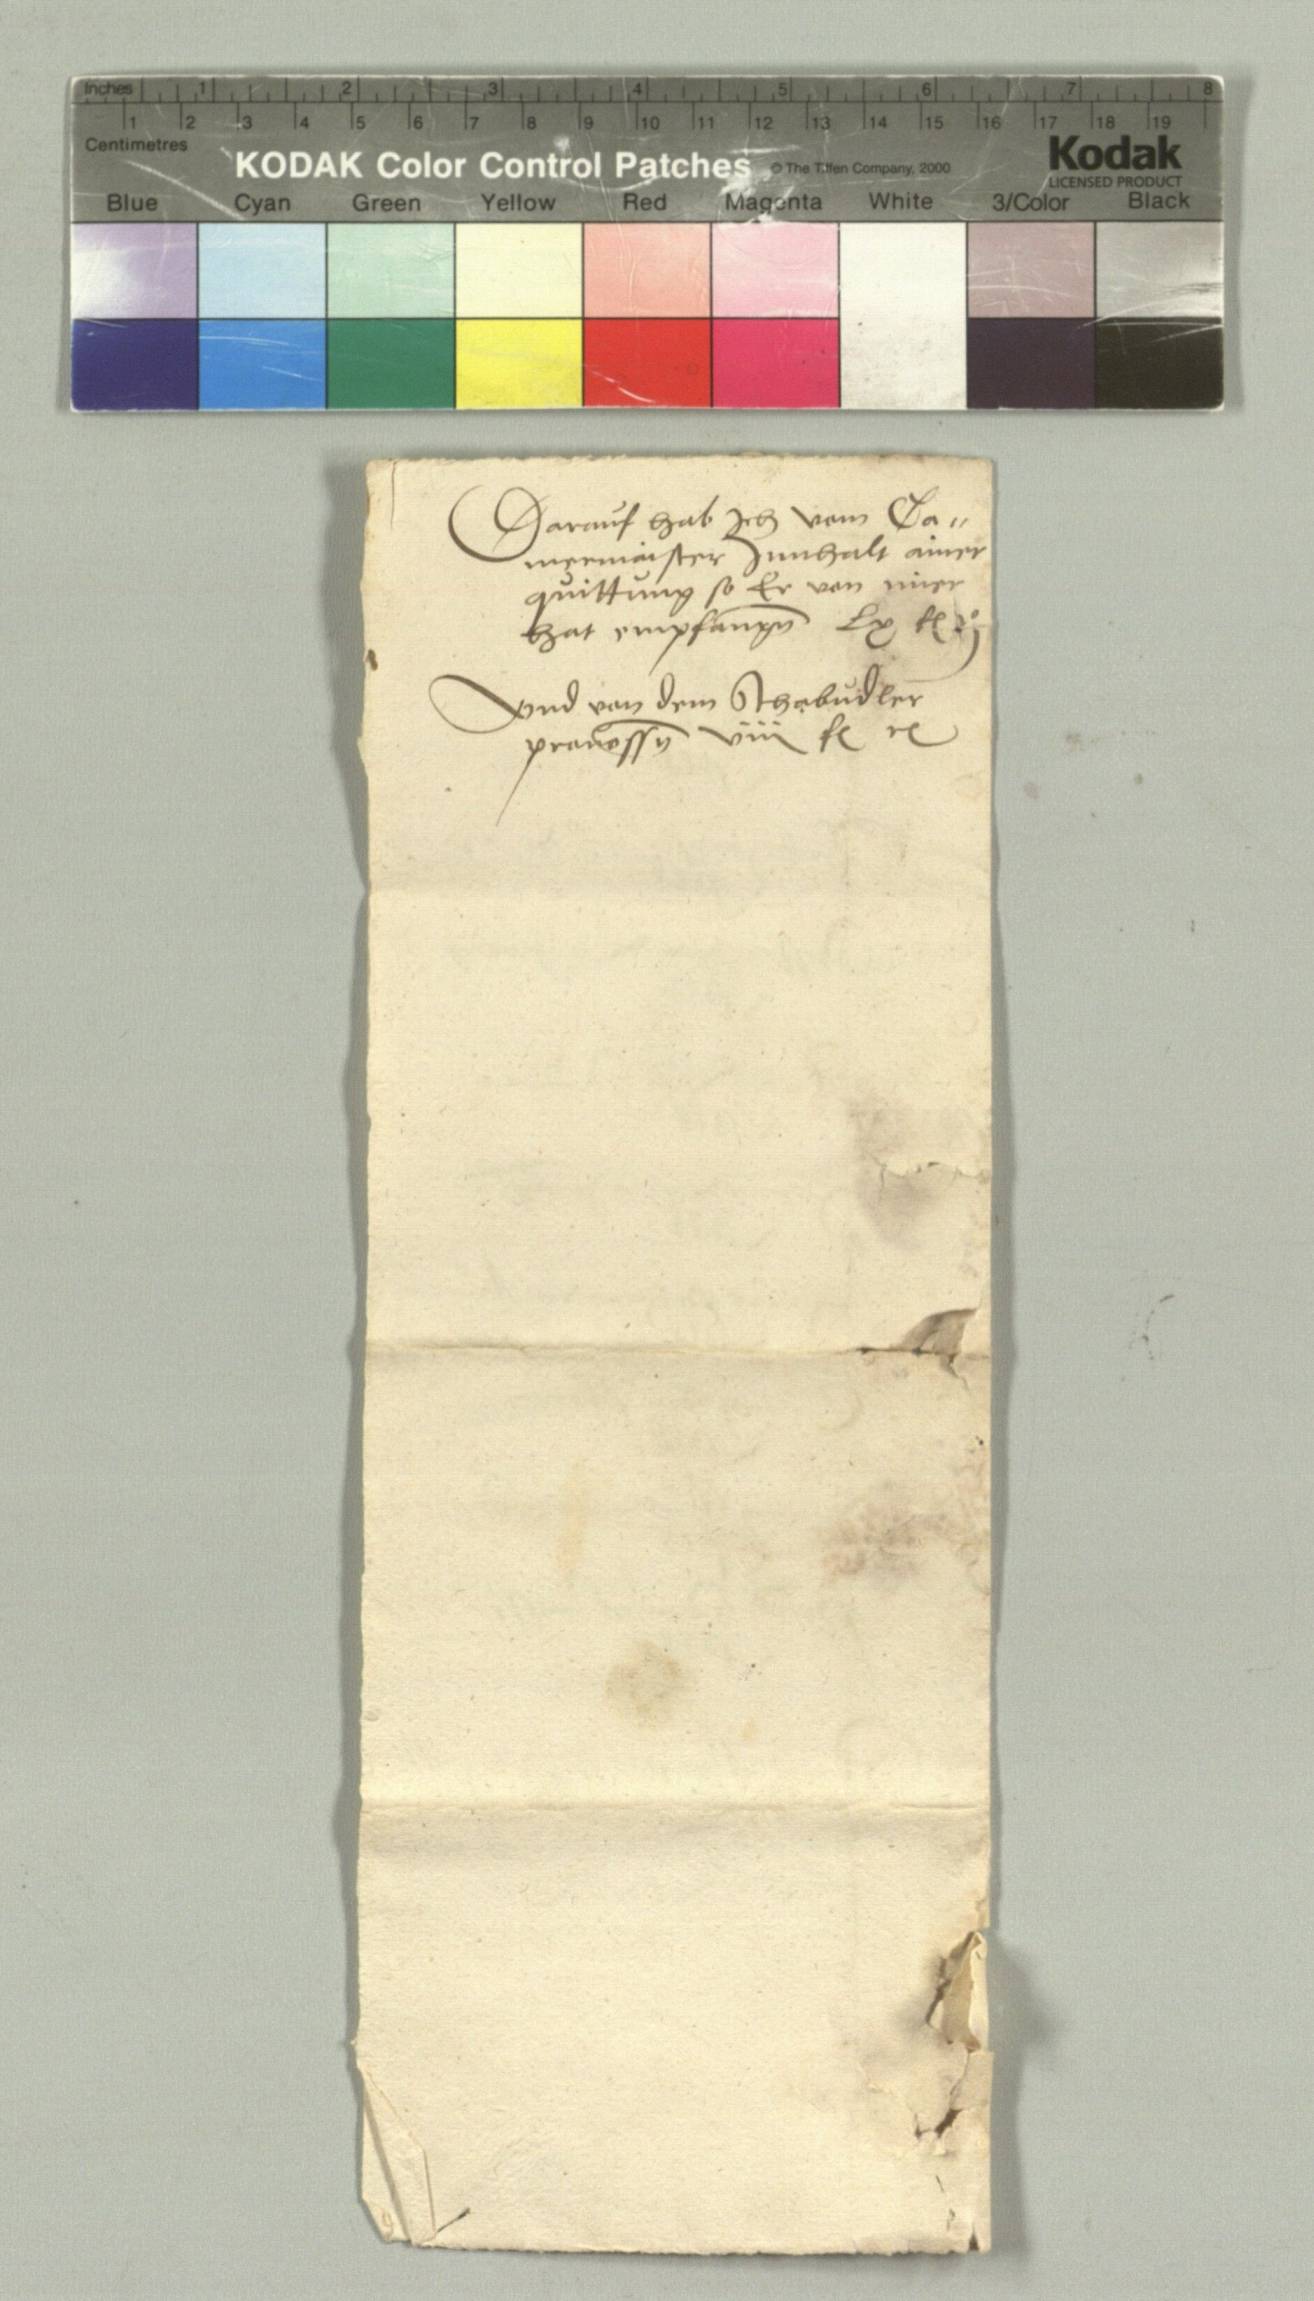 Inches 1 2 3 4 5 6 7 8
1 2 3 4 5 6 7 8 9 10 11 12 13 14 15 16 17 18 19
Centimetres
KODAK Color Control Patches © The Tiffen Company, 2000 Kodak
LICENSED PRODUCT
Blue Cyan Green Yellow Red Magenta White 3/Color Black
Darauf hab Ich vom Ca〃
mermaister Innhalt ainer
quittung so Er von mier
hat empfangn Lx
Und von dem
viiii